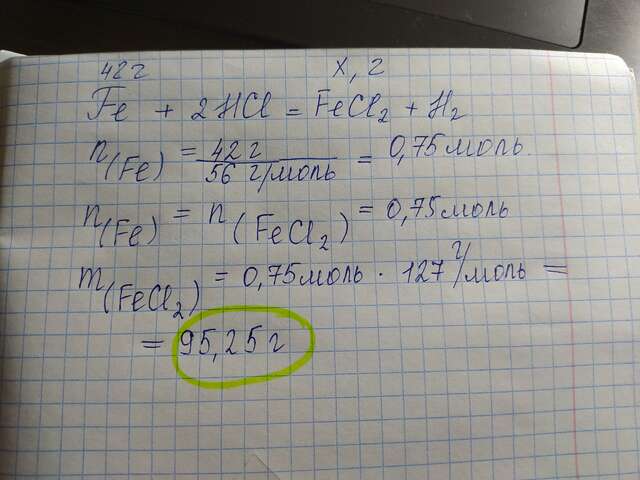 42 г x, г
Fe + 2HCl = FeCl₂ + H₂
n(Fe) = 42 г / 56 г/моль = 0,75 моль
n(Fe) = n(FeCl₂) = 0,75 моль
m(FeCl₂) = 0,75 моль · 127 г/моль =
= 95,25 г